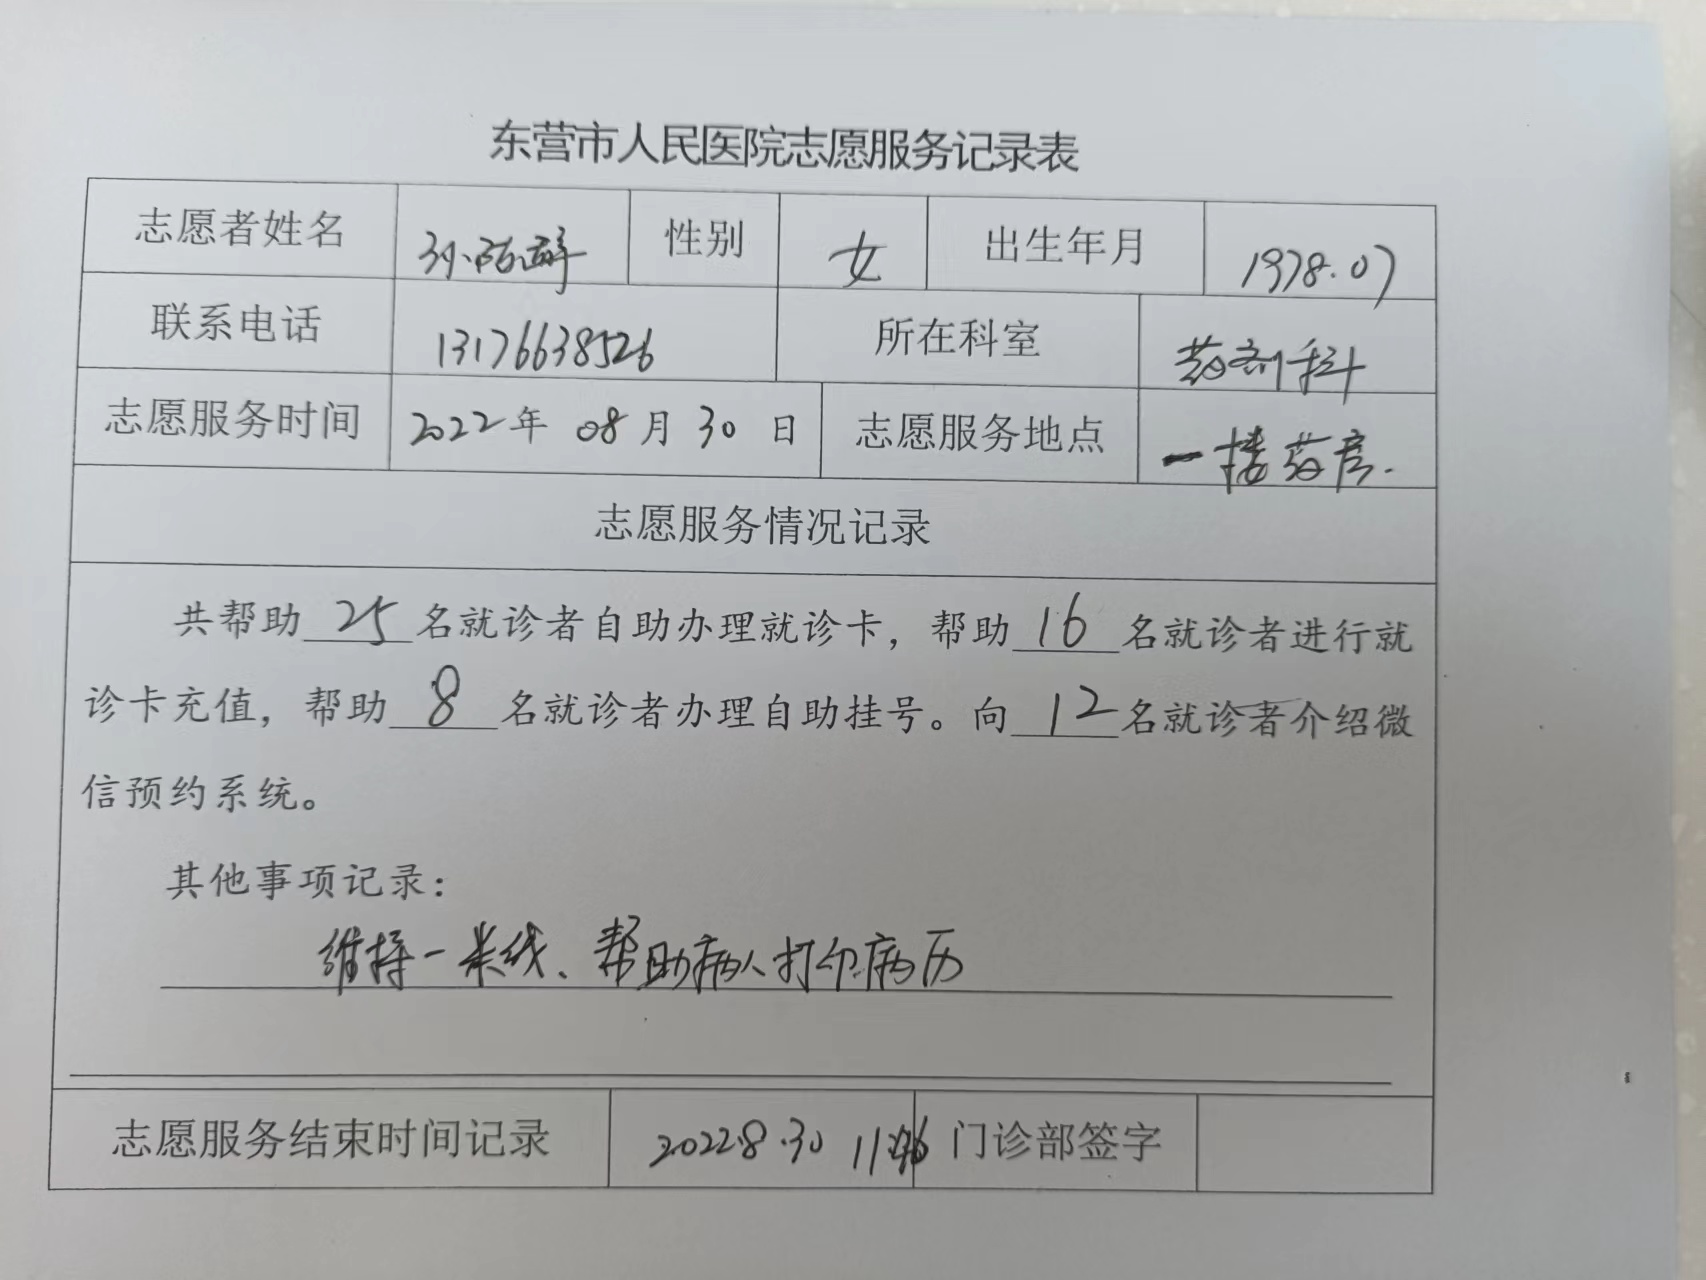 东营市人民医院志愿服务记录表
志愿者姓名 性别 女 出生年月 1978.07
联系电话 13176638526 所在科室 药剂科
志愿服务时间 2022年 08月 30日 志愿服务地点 一楼药房.
志愿服务情况记录
共帮助25名就诊者自助办理就诊卡，帮助16名就诊者进行就
诊卡充值，帮助8名就诊者办理自助挂号。向12名就诊者介绍微
信预约系统。
其他事项记录：
维持一米线、帮助病人打印病历
志愿服务结束时间记录 2022.8.30 11:46 门诊部签字